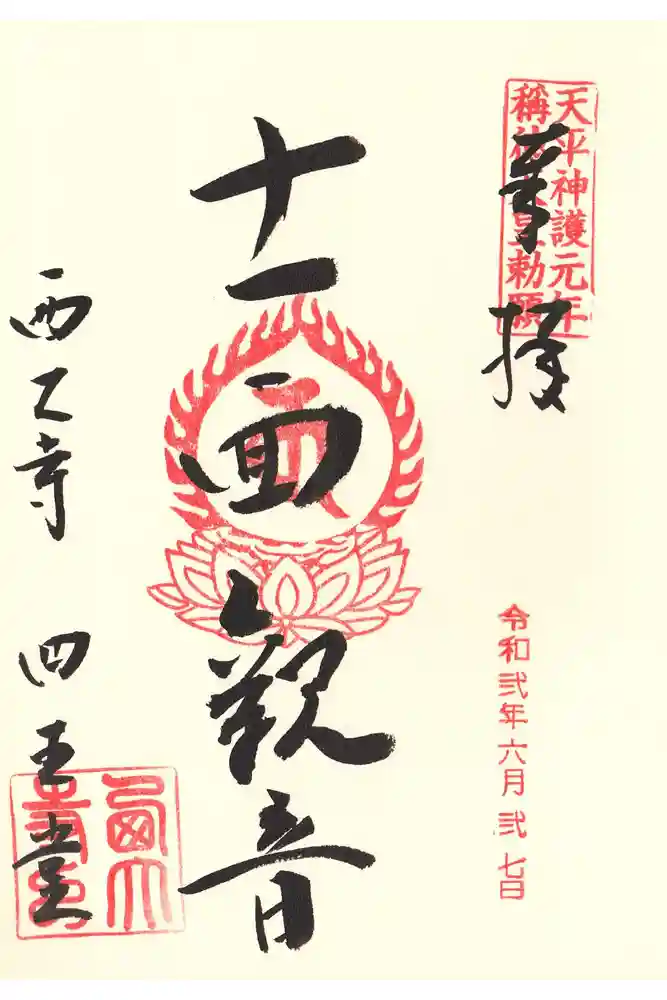 天平神護元年
稱徳天皇勅願
奉拝
令和弐年六月弐七日
十一面観音
西大寺 四王堂